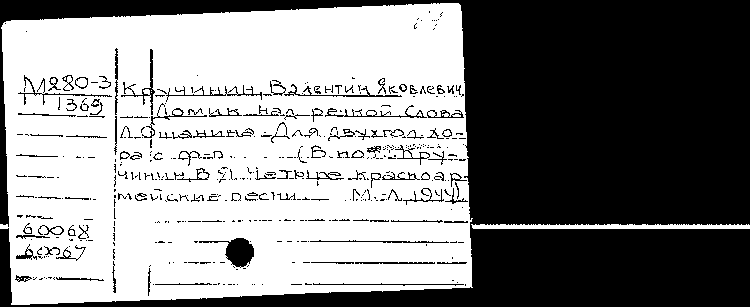 М280-3
1369
Кручинин, Валентин Яковлевич.
Домик над речкой Слова
Л. Ошанина. - Для двухгол. хо-
ра с ф-п. (В нот.: Кру-
чинин, В. Я. Четыре красноар-
мейские песни. М.-Л., 1944).
60068
60067